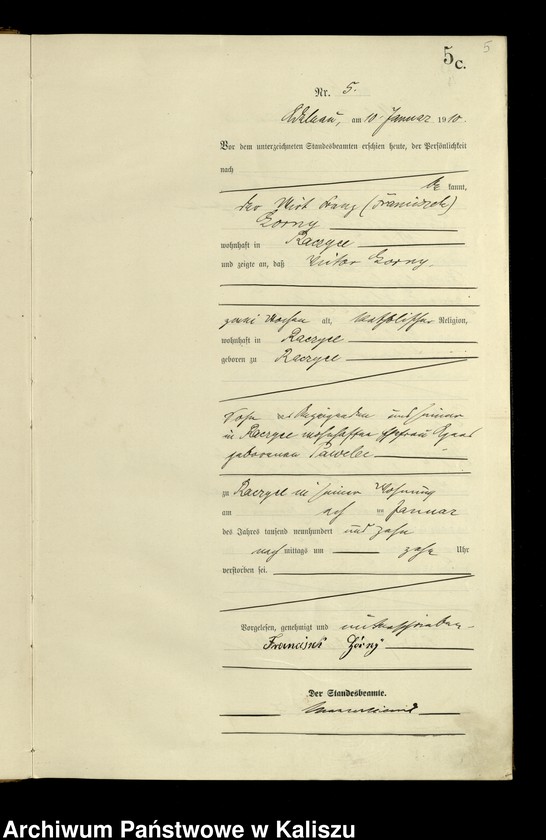 5c.
5
Nr. 5.
am 10. Januar 1910.
Vor dem unterzeichneten Standesbeamten erschien heute, der Persönlichkeit
nach
be kannt,
der Wirt Franz (Franciszek)
Gorny
wohnhaft in Raczyce
und zeigte an, daß Victor Gorny
zwei Wochen alt, katholischer Religion,
wohnhaft in Raczyce
geboren zu Raczyce
Sohn des Anzeigenden und seiner
in Raczyce wohnhaften Ehefrau
geborenen Pawelec
zu Raczyce in seiner Wohnung
am acht ten Januar
des Jahres tausend neunhundert und zehn
nach mittags um zehn Uhr
verstorben sei.
Vorgelesen, genehmigt und unterschrieben
Górny
Der Standesbeamte.
Archiwum Państwowe w Kaliszu